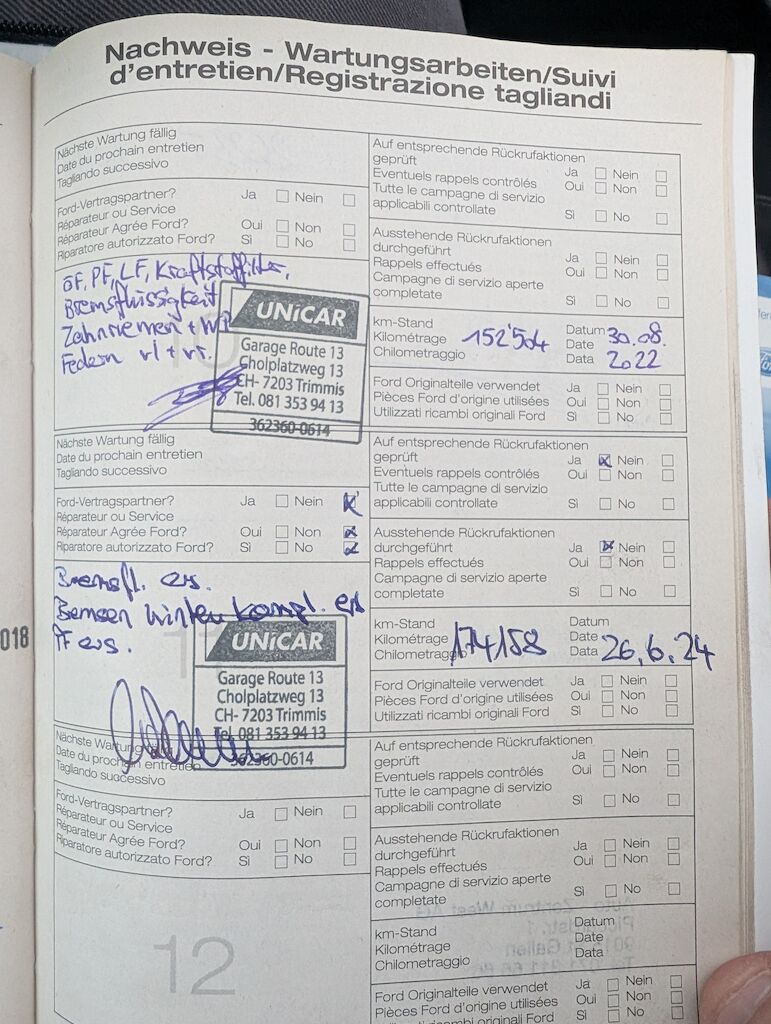 Nachweis - Wartungsarbeiten/Suivi
d'entretien/Registrazione tagliandi
Nächste Wartung fällig
Date du prochain entretien
Tagliando successivo
Ford-Vertragspartner? Ja Nein
Réparateur ou Service
Réparateur Agrée Ford? Oui Non
Riparatore autorizzato Ford? Sì No
ÖF, PF, LF, Kraftstofffilter,
Bremsflüssigkeit
Zahnriemen +
Federn vl + vr.
UNiCAR
Garage Route 13
Cholplatzweg 13
CH- 7203 Trimmis
Tel. 081 353 94 13
362360-0614
Auf entsprechende Rückrufaktionen
geprüft Ja Nein
Eventuels rappels contrôlés Oui Non
Tutte le campagne di servizio
applicabili controllate Sì No
Ausstehende Rückrufaktionen
durchgeführt Ja Nein
Rappels effectués Oui Non
Campagne di servizio aperte
completate Sì No
km-Stand Datum
Kilométrage 152'504 Date 30.08.
Chilometraggio Data 2022
Ford Originalteile verwendet Ja Nein
Pièces Ford d'origine utilisées Oui Non
Utilizzati ricambi originali Ford Sì No
Nächste Wartung fällig
Date du prochain entretien
Tagliando successivo
Ford-Vertragspartner? Ja Nein
Réparateur ou Service
Réparateur Agrée Ford? Oui Non
Riparatore autorizzato Ford? Sì No
Bremsfl. ers.
Bemsen hinten kompl. ers
PF ers.
11
UNiCAR
Garage Route 13
Cholplatzweg 13
CH- 7203 Trimmis
Tel. 081 353 94 13
362360-0614
Auf entsprechende Rückrufaktionen
geprüft Ja Nein
Eventuels rappels contrôlés Oui Non
Tutte le campagne di servizio
applicabili controllate Sì No
Ausstehende Rückrufaktionen
durchgeführt Ja Nein
Rappels effectués Oui Non
Campagne di servizio aperte
completate Sì No
km-Stand Datum
Kilométrage Date
Chilometraggio 174158 Data 26.6.24
Ford Originalteile verwendet Ja Nein
Pièces Ford d'origine utilisées Oui Non
Utilizzati ricambi originali Ford Sì No
018
Nächste Wartung fällig
Date du prochain entretien
Tagliando successivo
Ford-Vertragspartner? Ja Nein
Réparateur ou Service
Réparateur Agrée Ford? Oui Non
Riparatore autorizzato Ford? Sì No
12
Auf entsprechende Rückrufaktionen
geprüft Ja Nein
Eventuels rappels contrôlés Oui Non
Tutte le campagne di servizio
applicabili controllate Sì No
Ausstehende Rückrufaktionen
durchgeführt Ja Nein
Rappels effectués Oui Non
Campagne di servizio aperte
completate Sì No
km-Stand Datum
Kilométrage Date
Chilometraggio Data
Ford Originalteile verwendet Ja Nein
Pièces Ford d'origine utilisées Oui Non
Utilizzati ricambi originali Ford Sì No